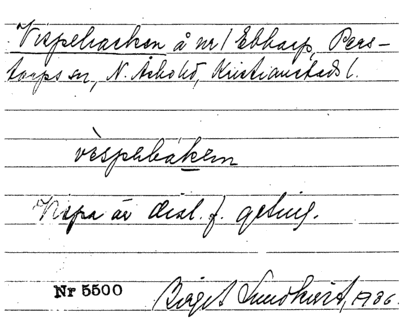 Vispebacken å nr 1 Ebbarp, Pers-
torps sn, N. Åsbo hd, Kristianstads l.
vèspebákem
Vispa är dial. f. geting.
Nr 5500 Birgit Sundkvist, 1936.